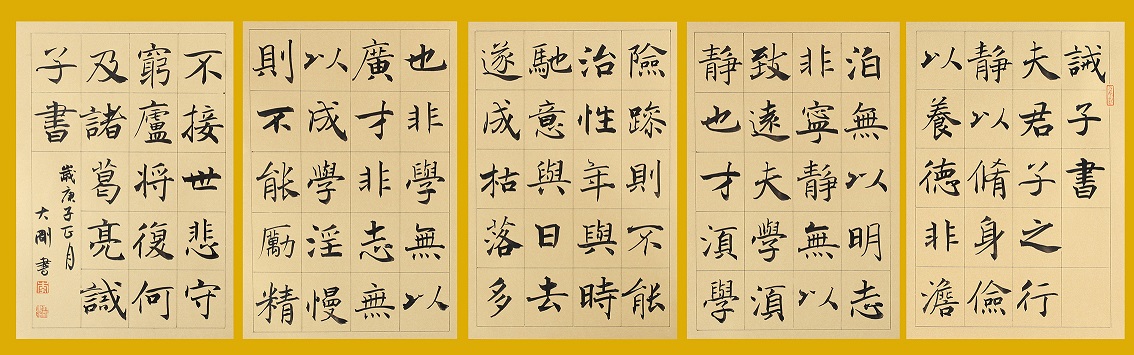 誡子書
夫君子之行
靜以脩身儉
以養德非澹
泊無以明志
非寧靜無以
致遠夫學湏
靜也才湏學
險躁則不能
治性年與時
馳意與日去
遂成枯落多
也非學無以
廣才非志無
以成學淫慢
則不能勵精
不接世悲守
窮廬將復何
及諸葛亮誡
子書
歲庚子正月
大剛書